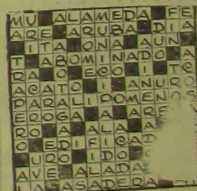 MU ALAMEDA FE
ARE ARUBA DIA
ITA ONA AUN
T ABOMINADO A
RA O ECO I TC
ACATO I ANURO
PARALIPOMENOS
EROGA A ARF
RO A ALA
O EDIFICA
URO IDO
AVE ALADA
ASADERA